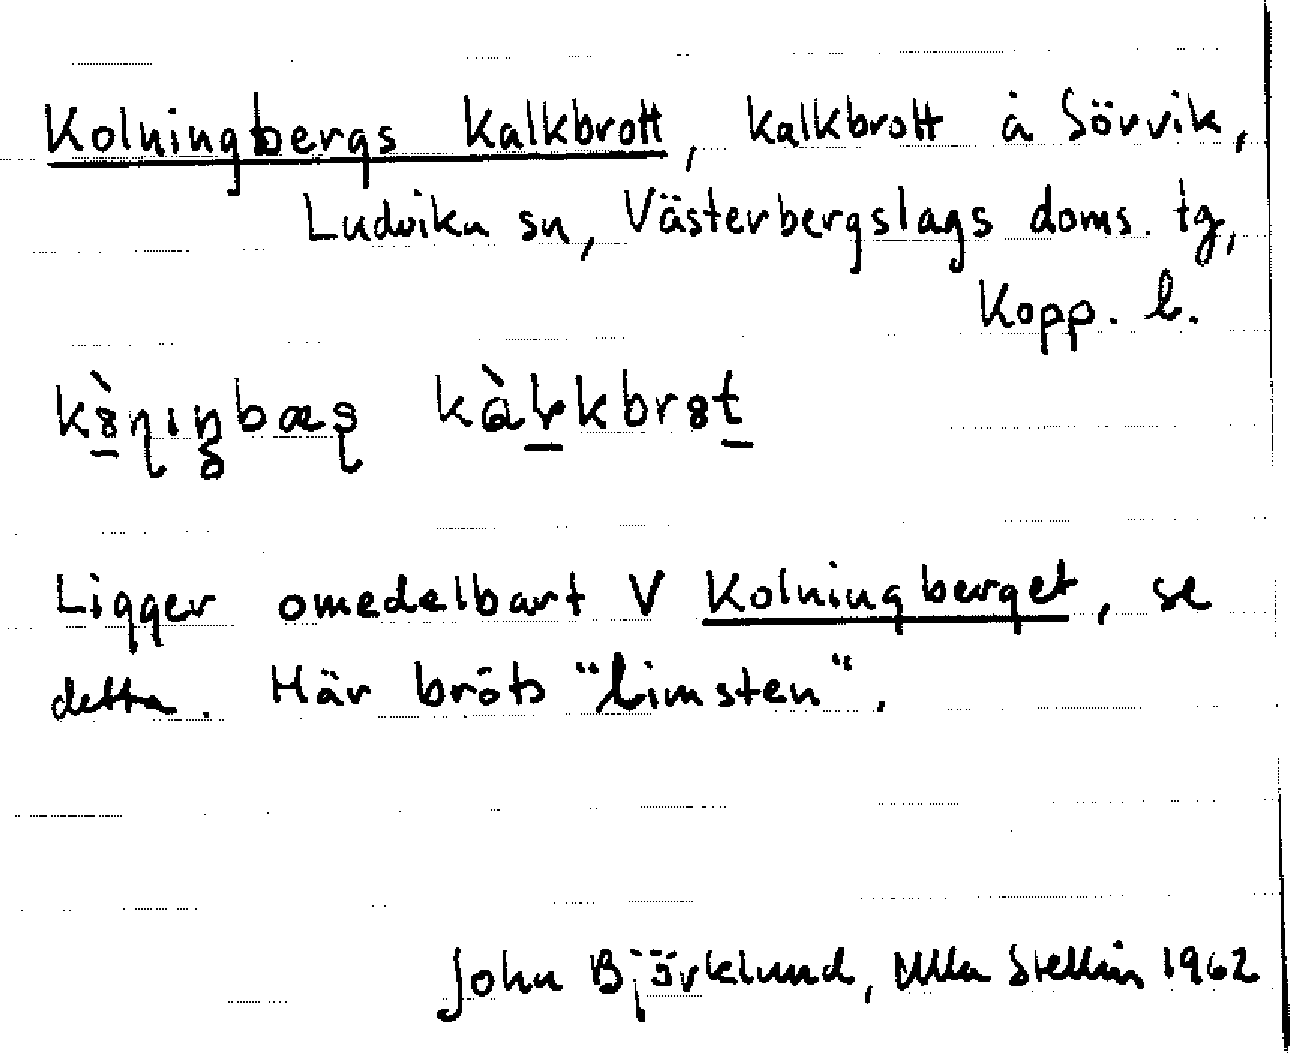 Kolningbergs Kalkbrott, kalkbrott å Sörvik,
Ludvika sn, Västerbergslags doms. tg,
Kopp. l.
Ligger omedelbart V Kolningberget, se
detta. Här bröts "limsten".
John Björklund, Ulla Stellin 1962